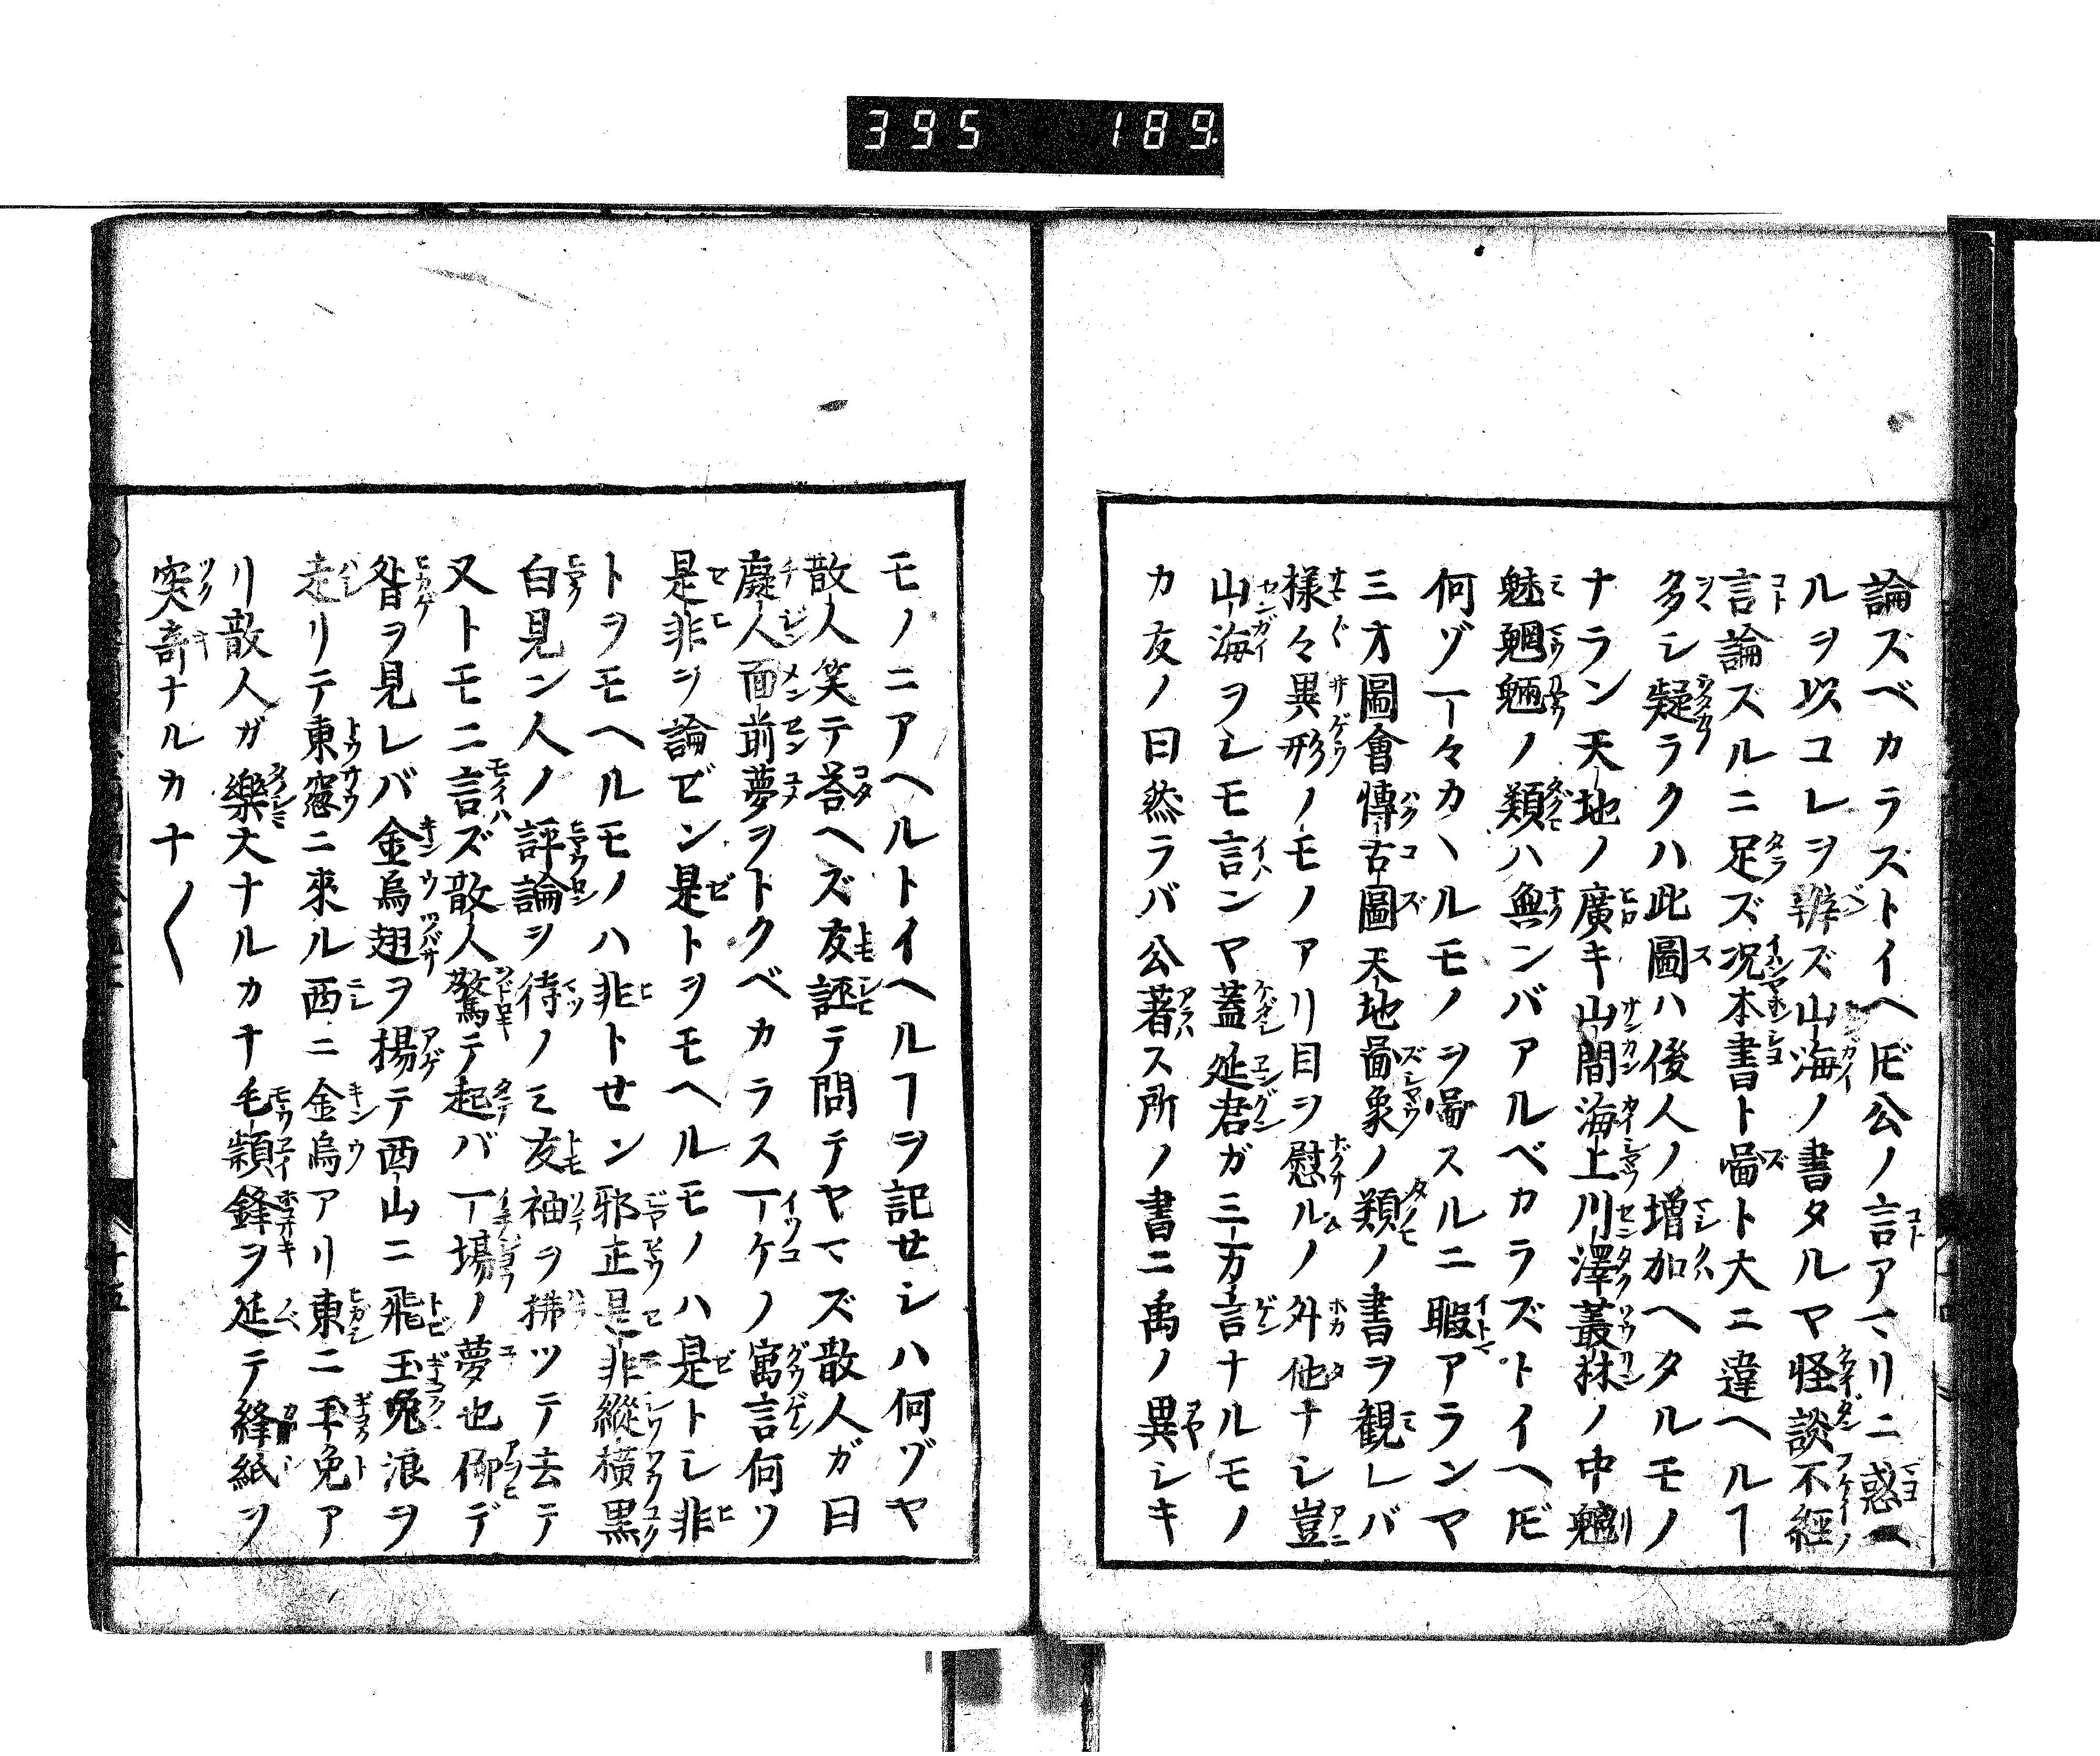 395 189
論ズベカラズトイヘ𪜈公ノ言アマリニ惑ヘ
ルヲ以コレヲ辨ズ山海ノ書タルヤ怪談不經
言論ズルニ足ズ况本書ト圖ト大ニ違ヘルヿ
多シ疑ラクハ此圖ハ後人ノ増加ヘタルモノ
ナラン天地ノ廣キ山間海上川澤叢林ノ中魑
魅魍魎ノ類ハ無ンバアルベカラズトイヘ𪜈
何ゾ一々カヽルモノヲ啚スルニ暇アランヤ
三才圖會博古圖天地啚象ノ類ノ書ヲ観レバ
様々異形ノモノアリ目ヲ慰ルノ外他ナシ豈
山海ヲシモ言ンヤ蓋延君ガ三万言ナルモノ
カ友ノ曰然ラバ公著ス所ノ書ニ禹ノ異シキ
モノニアヘルトイヘルヿヲ記セシハ何ヅヤ
散人笑テ荅ヘズ友誣テ問テヤマズ散人ガ曰
癡人面前夢ヲトクベカラス一ケノ寓言何ソ
是非ヲ論ゼン是トヲモヘルモノハ是トシ非
トヲモヘルモノハ非トセン邪正是非縱横黒
白見ン人ノ評論ヲ待ノミ友袖ヲ拂ツテ去テ
又トモニ言ズ散人驚テ起バ一場ノ夢也仰デ
晷ヲ見レバ金烏翅ヲ揚テ西山ニ飛玉兎浪ヲ
走リテ東窓ニ來ル西ニ金烏アリ東ニ玉兔ア
リ散人ガ樂大ナルカナ毛頴鋒ヲ延テ絳紙ヲ
突奇ナルカナ〳〵
十五